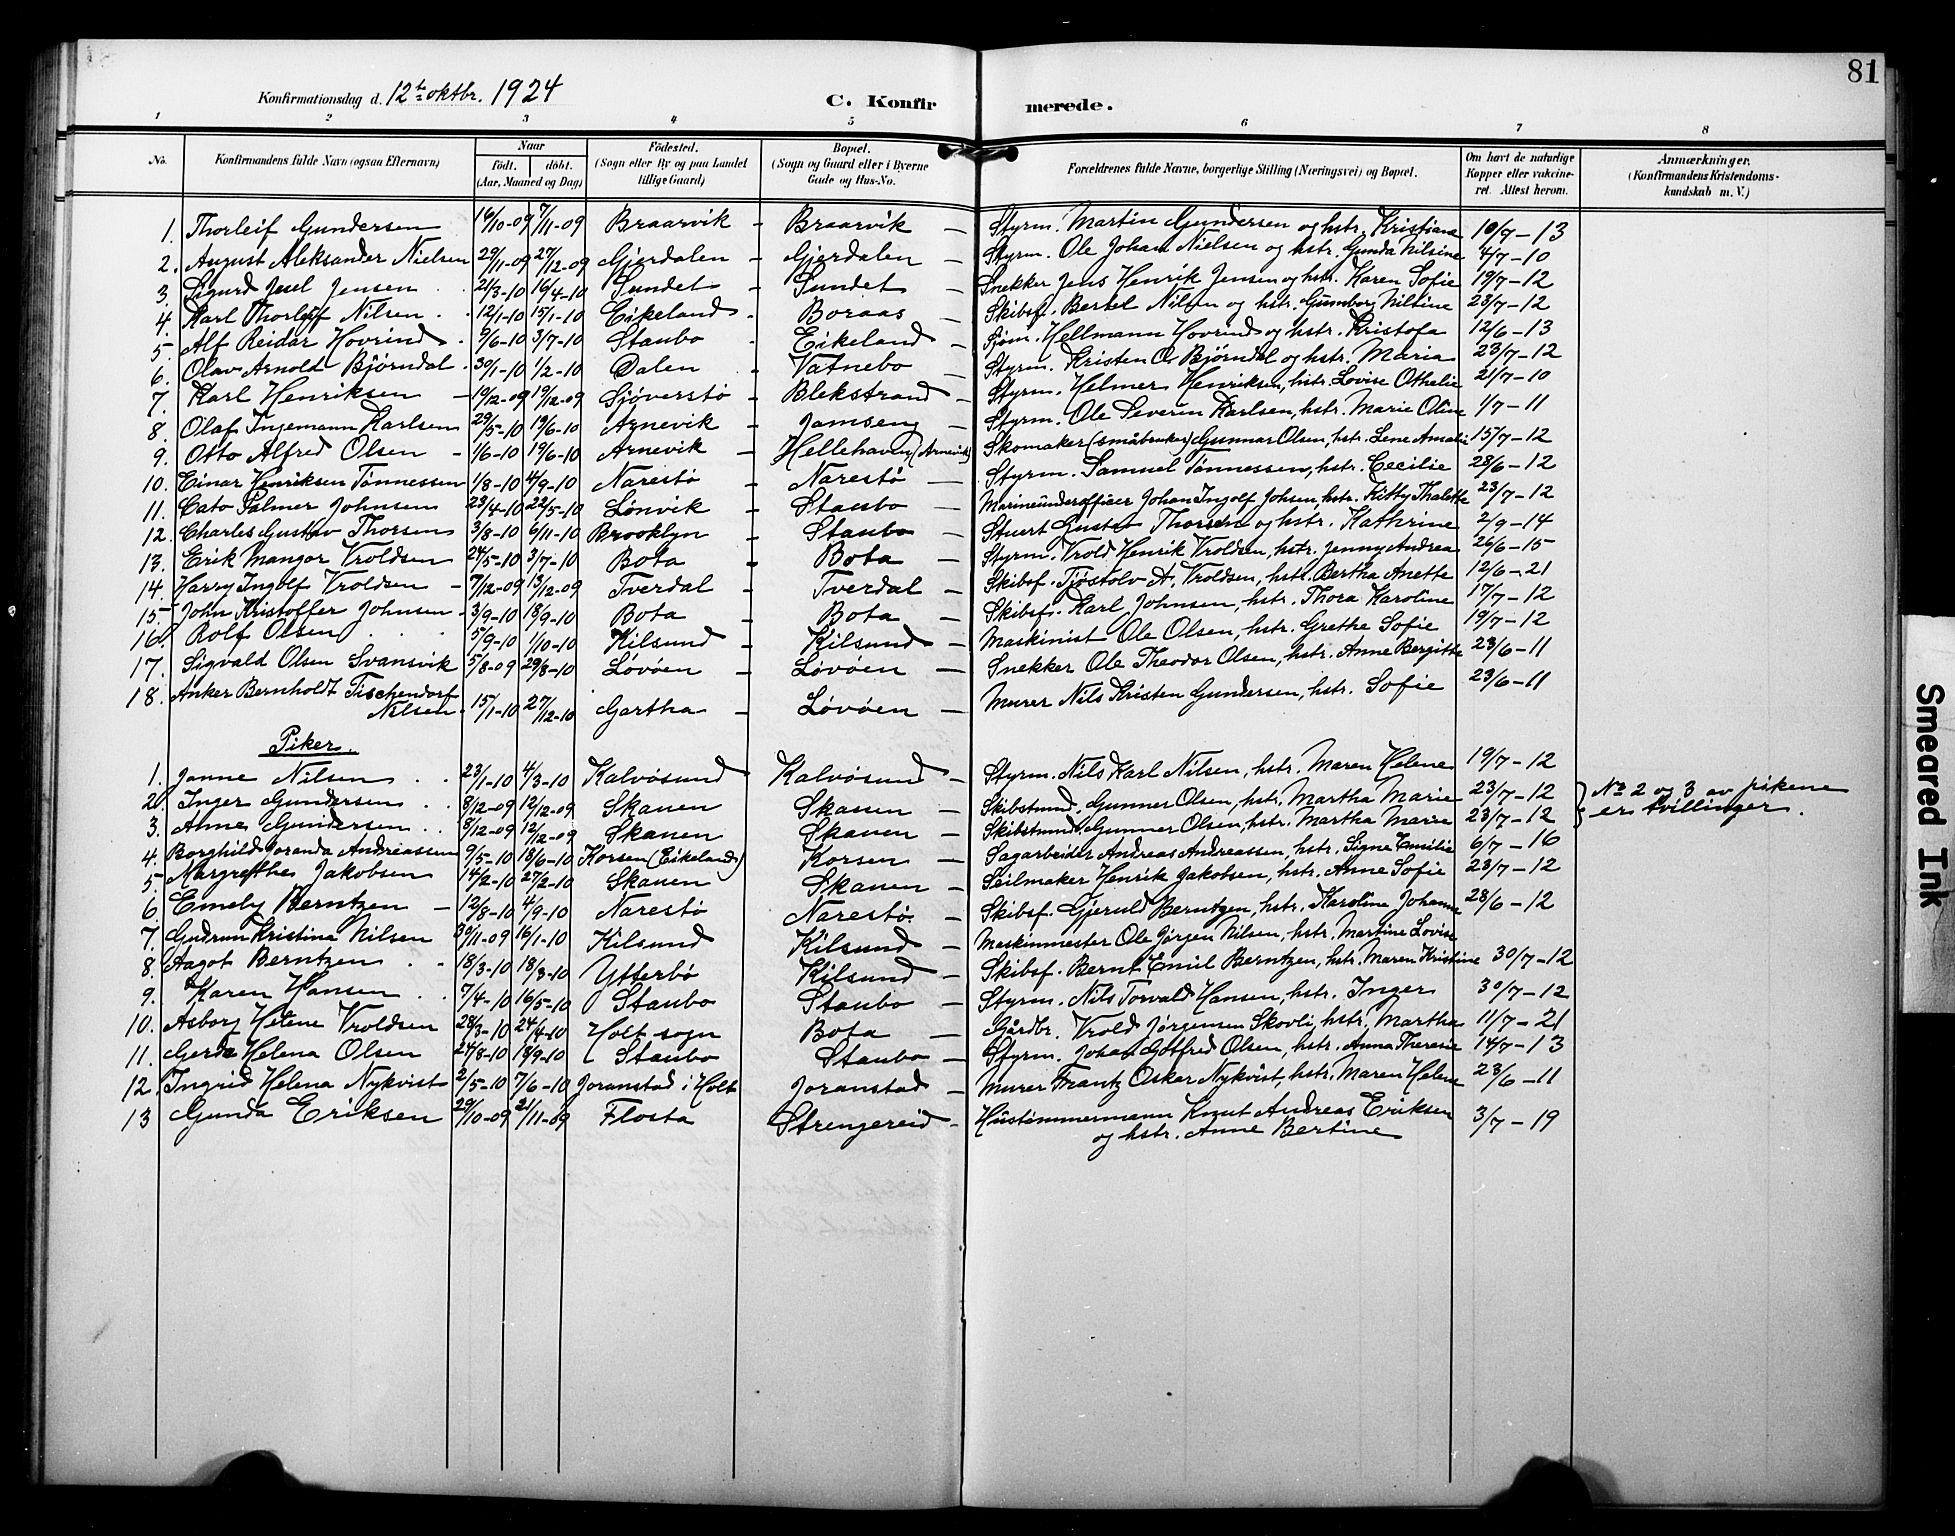 81
Konfirmationsdag d. 12te oktbr. 1924 C. Konfirmerede.
1 2 3 4 5 6 7 8
No. Konfirmandens fulde Navn (ogsaa Efternavn) Naar født. døbt. (Aar, Maaned og Dag) Fødested. (Sogn eller By og paa Landet tillige Gaard) Bopæl. (Sogn og Gaard eller i Byerne Gade og Hus-No. Forældrenes fulde Navne, borgerlige Stilling (Næringsvei) og Bopæl. Om havt de naturlige Kopper eller vaccineret. Attest herom. Anmærkninger. (Konfirmandens Kristendomskundskab m. V.)
1. Thorleif Gundersen 16/10-09 7/11-09 Braarvik - Braarvik - Styrm. Martin Gundersen og hstr. Kristiane 10/7-13
2. August Aleksander Nielsen 29/11-09 27/12-09 Gjerdalen - Gjerdalen - Styrm. Ole Johan Nielsen og hstr. Gunda Nilsine 4/7-10
3. Sigurd Juel Jensen 21/3-10 16/4-10 Sundet - Sundet - Snekker Jens Henrik Jensen og hstr. Karen Sofie 19/7-12
4. Karl Thorleif Nilsen 12/1-10 15/1-10 Eikeland - Boraas - Skibsf. Bertel Nilsen og hstr. Gunnborg Nilsine 23/7-12
5. Alf Reidar Hovrind 9/6-10 3/7-10 Staubo - Eikeland - Sjøm. Hellmann Hovrind og hstr. Kristofa 12/6-13
6. Olav Arnold Bjørndal 30/1-10 1/2-10 Dalen - Vatnebo - Styrm. Kristen O. Bjørndal og hstr. Maria 23/7-12
7. Karl Henriksen - 19/12-09 19/12-09 Sjøverstø - Blekstrand - Styrm. Helmer Henriksen, hstr. Lovise Othelie 21/7-10
8. Olaf Ingemann Karlsen 29/5-10 19/6-10 Arnevik - Jomseng - Styrm. Ole Severin Karlsen, hstr. Marie Oline 1/7-11
9. Otto Alfred Olsen - 1/6-10 19/6-10 Arnevik - Hellehaven (Arnevik) Skomaker (småbruker) Gunnar Olsen, hstr. Lene Amalie 15/7-12
10. Einar Henriksen Tønnessen 1/8-10 4/9-10 Narestø - Narestø - Styrm. Samuel Tønnessen, hstr. Cecilie 28/6-12
11. Cato Palmer Johnsen 23/4-10 22/5-10 Lønvik - Staubo - Marineunderofficer Johan Ingolf Johsen, hstr. Kitty Thalette 23/7-12
12. Charles Gustav Thorsen 3/8-10 6/11-10 Brooklyn - Staubo - Stuert Gustav Thorsen og hstr. Kathrine 2/9-14
13. Erik Mangor Vroldsen 24/5-10 3/7-10 Bota - Bota - Styrm. Vrold Henrik Vroldsen, hstr. Jenny Andrea 26/6-15
14. Harry Ingolf Vroldsen - 7/12-09 13/12-09 Tverdal - Tverdal - Skibsf. Tjøstolv A. Vroldsen, hstr. Bertha Anette 12/6-21
15. John Kristoffer Johnsen - 3/9-10 18/9-10 Bota - Bota - Skibsf. Karl Johnsen, hstr. Thora Karoline 17/7-12
16. Rolf Olsen 5/9-10 1/10-10 Kilsund - Kilsund - Maskinist Ole Olsen, hstr. Grethe Sofie 19/7-12
17. Sigvald Olsen Svansvik 5/8-09 29/8-10 Løvøen - Løvøen - Snekker Ole Theodor Olsen, hstr. Anne Bergitte 23/6-11
18. Anker Bernholdt Tischendorf
Nilsen 15/1-10 27/12-10 Gartha - Løvøen - Murer Nils Kristen Gundersen, hstr. Sofie 23/6-11
Piker.
1. Janne Nilsen 23/1-10 4/3-10 Kalvøsund Kalvøsund - Styrm. Nils Karl Nilsen, hstr. Maren Helene 19/7-12
2. Inger Gundersen 8/12-09 12/12-09 Skanen Skanen - Skibstmd. Gunner Olsen, hstr. Martha Marie 23/7-12 No 2 og 3 av pikene
3. Anne Gundersen 8/12-09 12/12-09 Skanen Skanen - Skibstmd. Gunner Olsen, hstr. Martha Marie 23/7-12 er tvillinger.
4. Borghild Joranda Andreassen 9/5-10 18/6-10 Korsen (Eikeland) Korsen - Sagarbeider Andreas Andreassen, hstr. Signe Emilie 6/7-16
5. Margrethe Jakobsen 14/2-10 27/2-10 Skanen Skanen - Seilmaker Henrik Jakobsen, hstr. Anne Sofie 23/7-12
6. Emely Berntzen - 12/8-10 4/9-10 Narestø Narestø. - Skibsf. Gjeruld Berntzen, hstr. Karoline Johanne 28/6-12
7. Gudrun Kristina Nilsen 30/11-09 16/1-10 Kilsund Kilsund - Maskinmester Ole Jørgen Nilsen, hstr. Martine Lovise
8. Aagot Berntzen 18/3-10 18/3-10 Ytterbø Kilsund - Skibsf. Bernt Emil Berntzen, hstr. Maren Kristine 30/7-12
9. Karen Hansen 7/4-10 16/5-10 Staubo Staubo - Styrm. Nils Torvald Hansen, hstr. Inger 30/7-12
10. Asborg Helene Vroldsen 28/3-10 24/4-10 Holt sogn Bota - Gårdbr. Vrold Jørgensen Skovli, hstr. Martha 11/7-21
11. Gerda Helena Olsen 24/8-10 18/9-10 Staubo Staubo - Styrm. Johan Gotfred Olsen, hstr. Anna Theresie 14/7-13
12. Ingrid Helena Nykvist 2/5-10 7/6-10 Joranstad i Holt Joranstad - Murer Frantz Oskar Nykvist, hstr. Maren Helene 23/6-11
13 Gunda Eriksen 29/10-09 21/11-09 Flosta Strengereid - Hustømmermann Knut Andreas Eriksen 3/7-19
og hstr. Anne Bertine
Smeared Ink